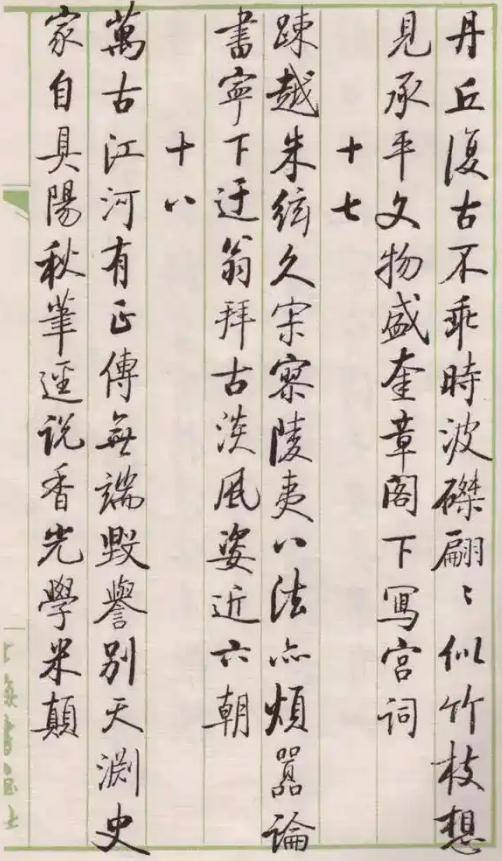 丹丘復古不乖時波磔翩〻似竹枝想
見承平文物盛奎章閣下寫宮詞
十七
踈越朱絃久寂寥陵夷八法亦煩囂論
書寧下迂翁拜古淡風姿近六朝
十八
萬古江河有正傳無端毀譽別天淵史
家自具陽秋筆逕說香光學米顛